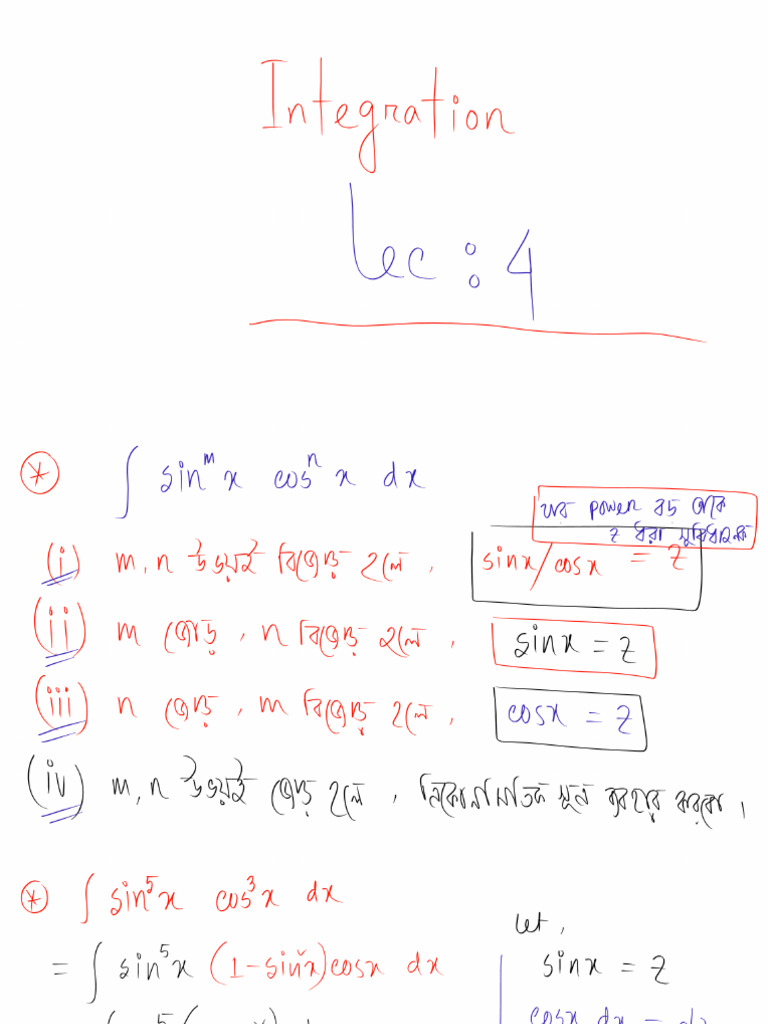 Integration
Lec : 4
* ∫ sin^m x cos^n x dx
যার power বড় তাকে
z ধরা সুবিধাজনক
(i) m, n উভয়ই বিজোড় হলে, sinx/cosx = z
(ii) m জোড়, n বিজোড় হলে, sinx = z
(iii) n জোড়, m বিজোড় হলে, cosx = z
(iv) m, n উভয়ই জোড় হলে, ত্রিকোণমিতিক সূত্র ব্যবহার করবো।
* ∫ sin⁵x cos³x dx
= ∫ sin⁵x (1-sin²x) cosx dx
Let,
sinx = z
cosx dx = dz